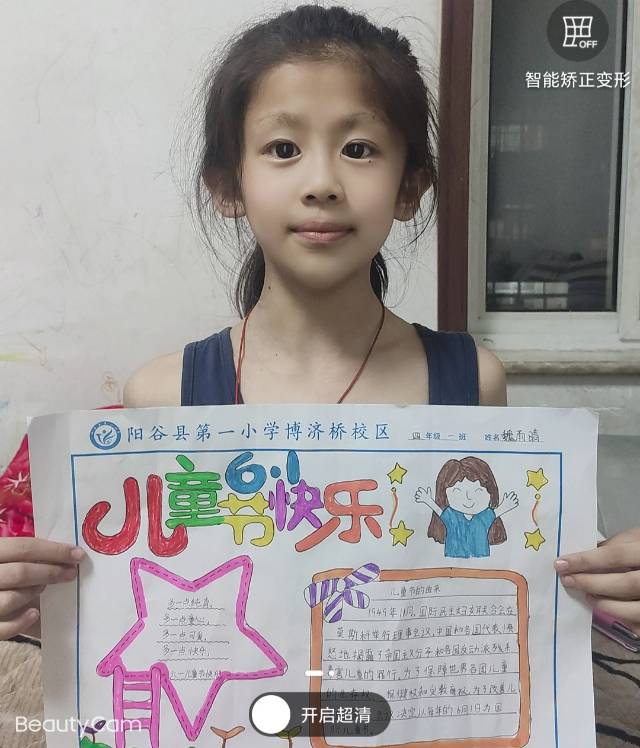 OFF
智能矫正变形
阳谷县第一小学博济桥校区 四年级一班 姓名魏雨晴
6.1
儿童节快乐
多一点纯真,
多一点童心,
多一点可爱,
多一点快乐,
六一儿童节快乐
儿童节的由来
1949年11月,国际民主妇女联合会在
莫斯科举行理事会议,中国和各国代表
愤怒地揭露了帝国主义分子和各国反动派残杀
毒害儿童的罪行,为了保障世界各国儿童
的生存权、保健权和受教育权,为了改善儿
决定以每年的6月1日为国
际儿童节。
BeautyCam
开启超清